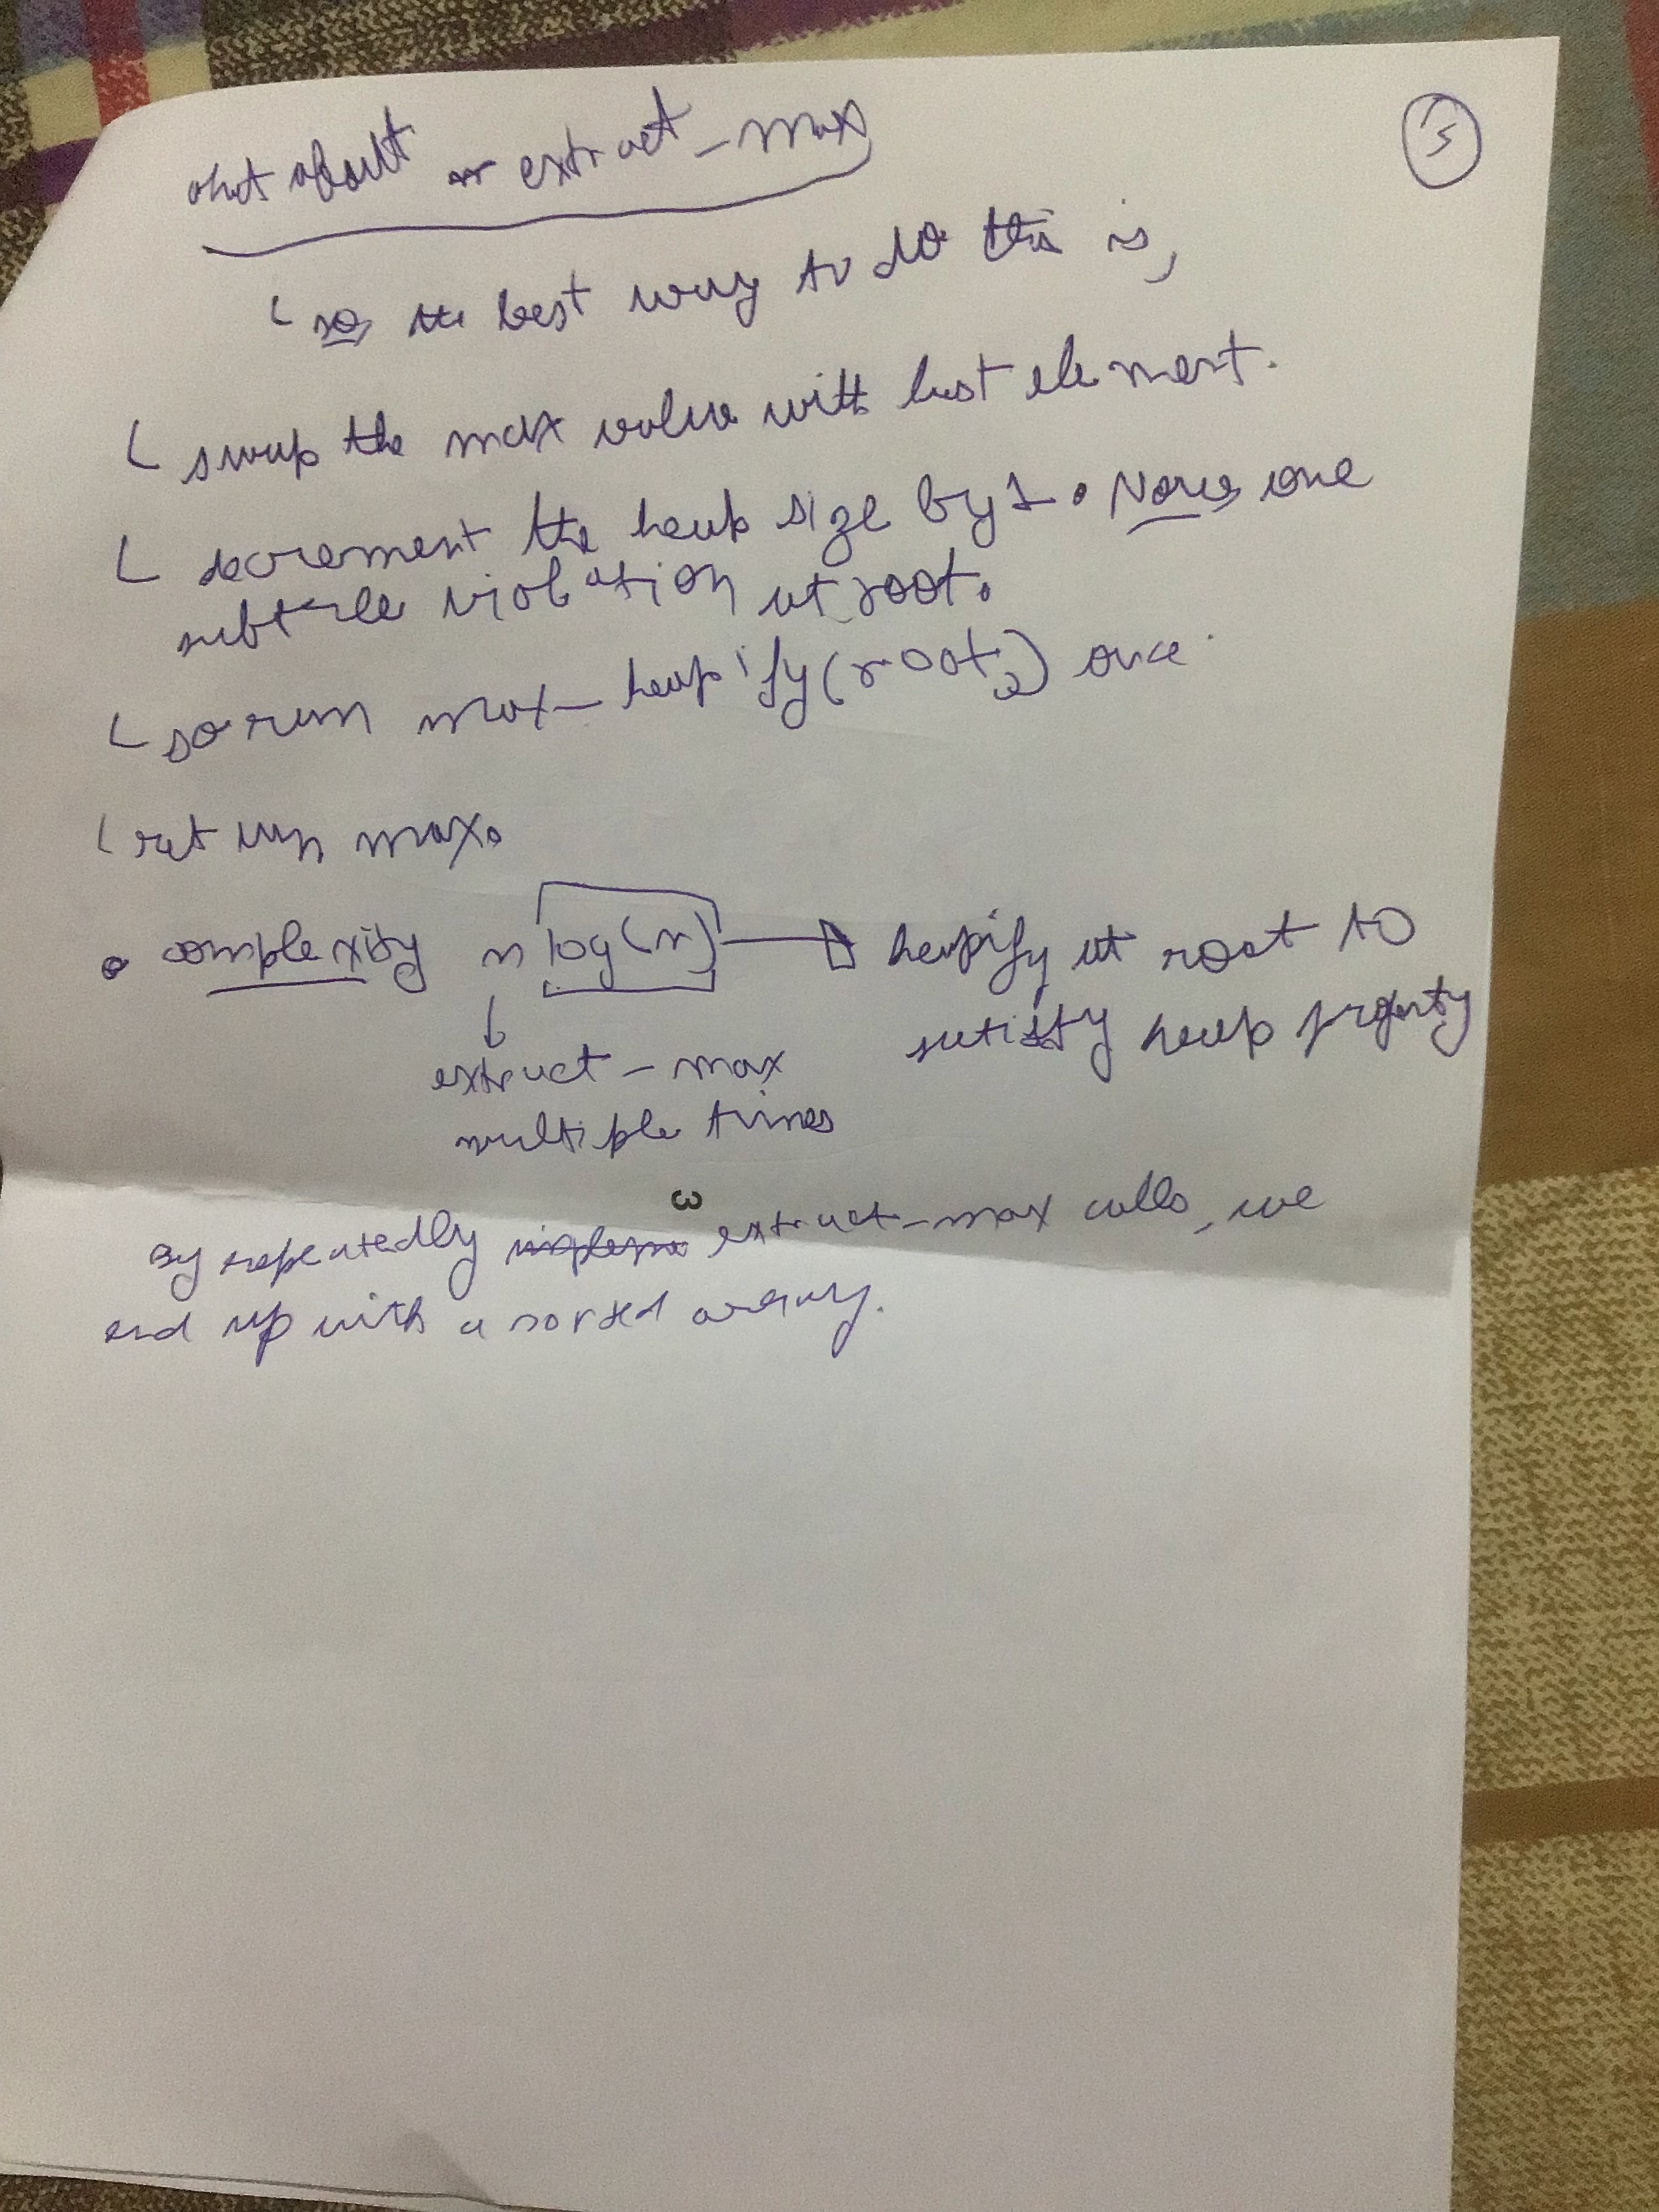 what about extract-max
5
so the best way to do this is,
swap the max value with last element.
decrement the heap size by 1. Now one
subtree violation at root.
so run max-heapify(root) once.
return max.
complexity n log(n) → heapify at root to
satisfy heap property
extract-max
multiple times
3
By repeatedly extract-max calls, we
end up with a sorted array.